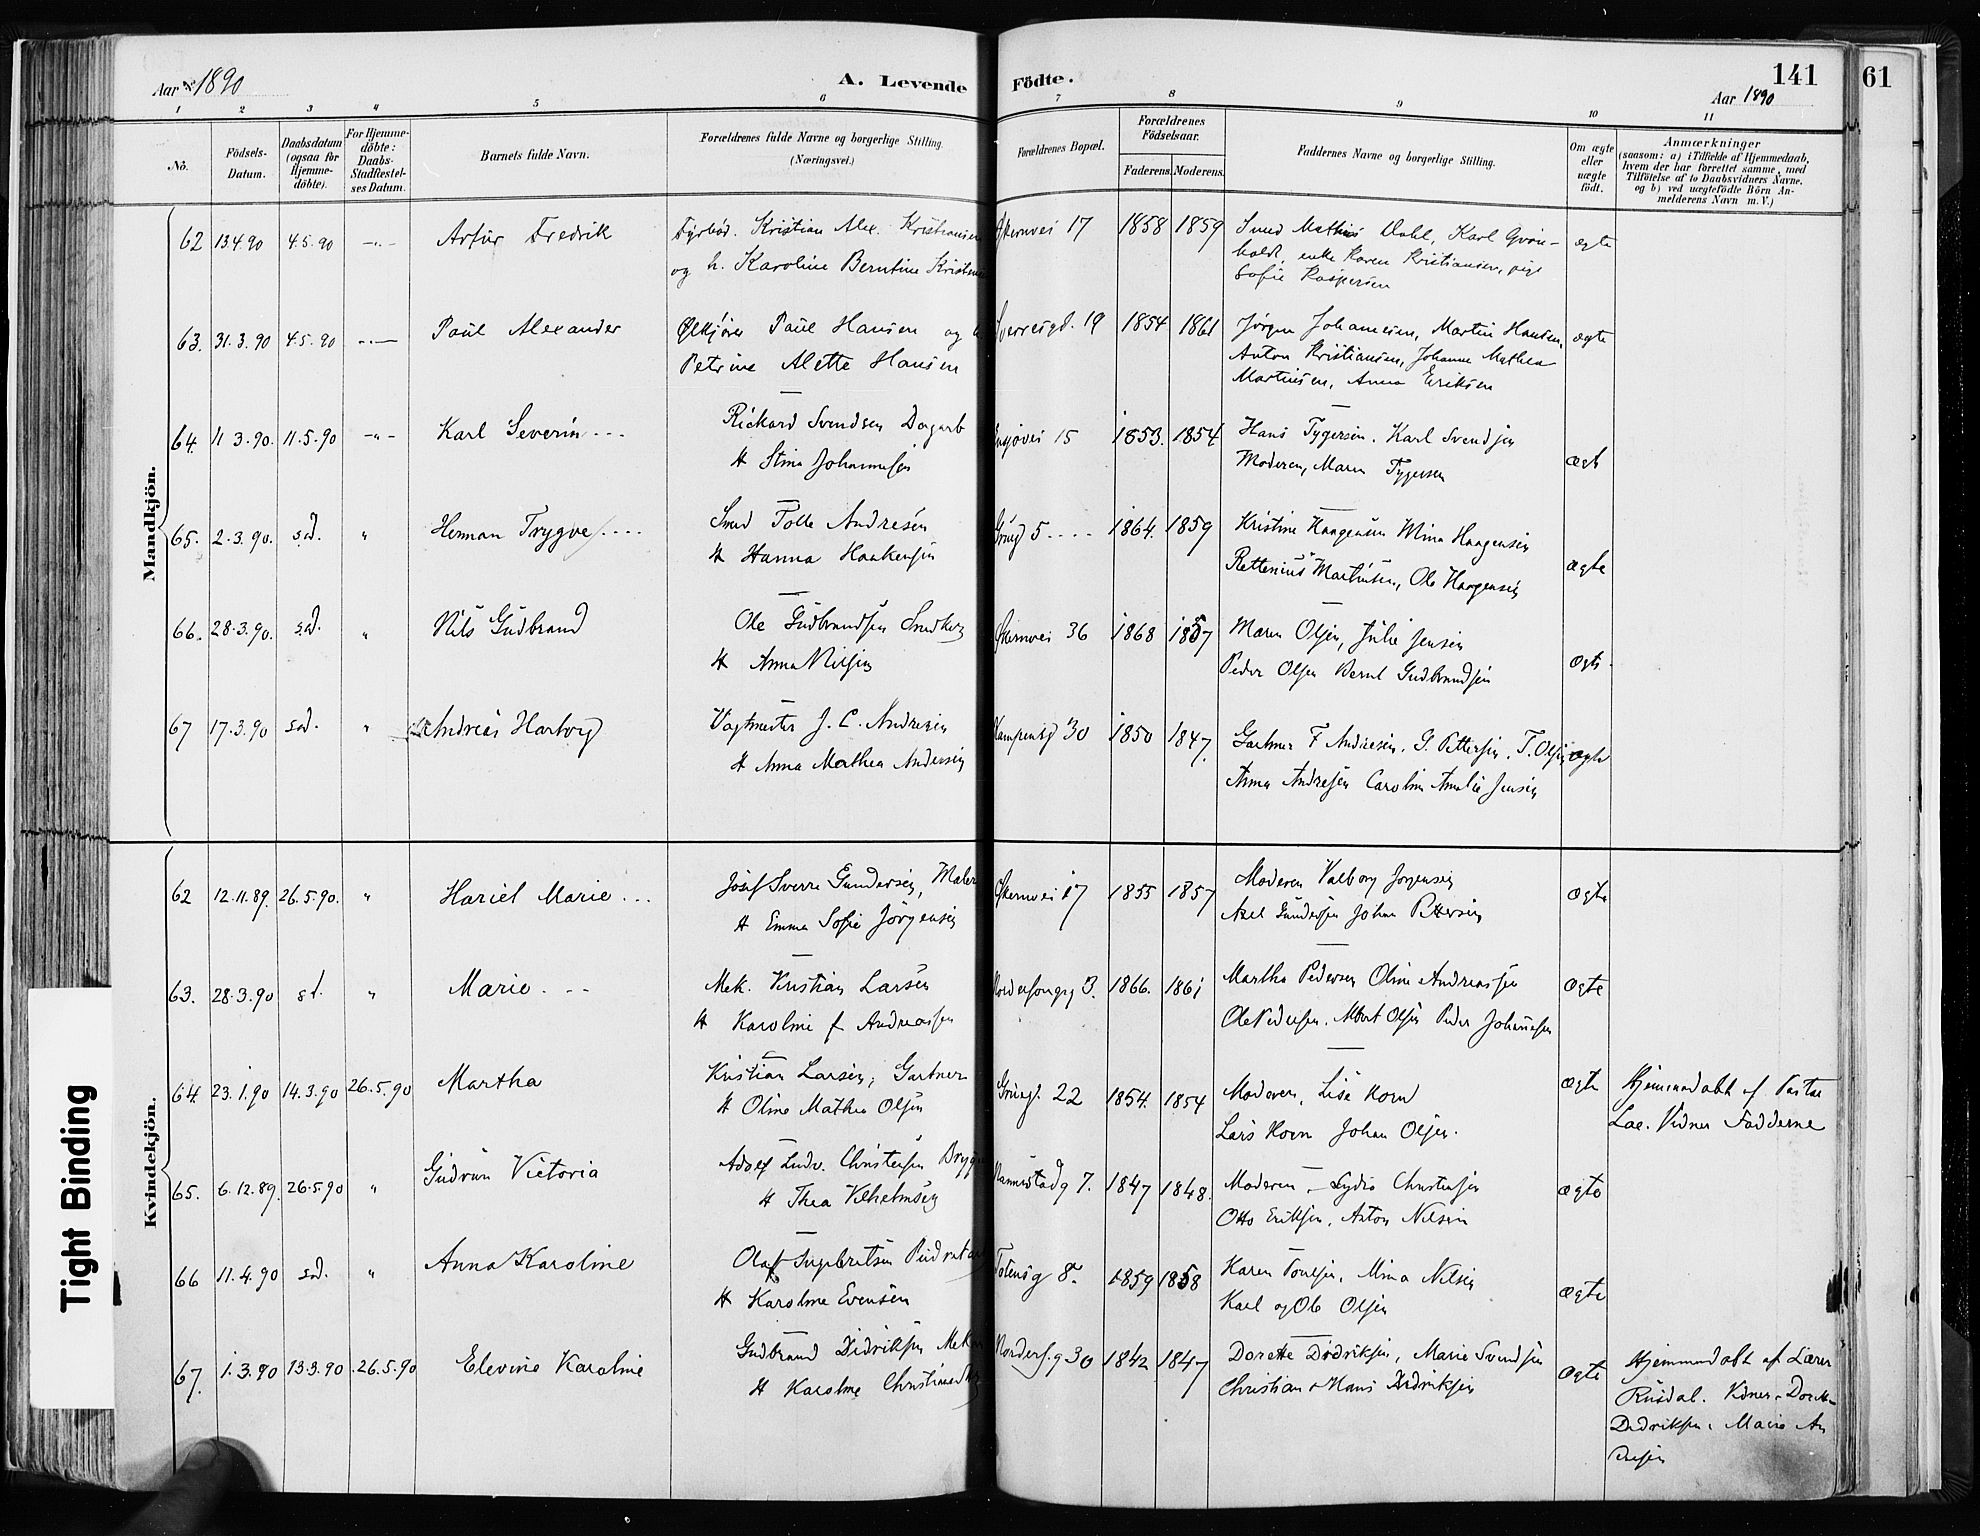 Aar 1890
A. Levende Födte.
141
61
Aar 1890
1 2 3 4 5 6 7 8 9 10 11
No.
Födsels-Datum.
Daabsdatum (ogsaa for Hjemme-döbte).
For Hjemme-döbte: Daabs-Stadfæstel-ses Datum.
Barnets fulde Navn.
Forældrenes fulde Navne og borgerlige Stilling. (Næringsvei.)
Forældrenes Bopæl.
Forældrenes Födselsaar.
Faderens. Moderens.
Faddernes Navne og borgerlige Stilling.
Om ægte eller uægte födt.
Anmærkninger
(saasom: a) i Tilfælde af Hjemmedaab,
hvem der har forrettet samme, med
Tilföielse af to Daabsvidners Navne.
og b) ved uægtefödte Börn An-
melderens Navn m. V.)
Mandkjön.
62 13.4.90 4.5.90 -"- Artur Fredrik Fyrbød. Kristian Alex. Kristiansen 17 1858 1859 Mathias Dahl, Karl ægte
og h. Karoline Berntine enke Karen Kristiansen, pige
Sofie Kaspersen
63. 31.3.90 4.5.90 -"- Paul Alexander Ølkjører Paul Hansen og Sverresgd. 19 1854 1861 Jørgen Johannesen, Martin Hansen, ægte
Petrine Alette Hansen Anton Kristiansen, Johanne Mathea
Martinsen, Anna Eriksen
64. 11.3.90. 11.5.90 -"- Karl Severin Rickard Svendsen Dagarb 15 1853. 1854 Hans Tygersen. Karl Svendsen
H Stina Johannesen Moderen, Maren Tygersen ægt
65. 2.3.90. sd. " Herman Trygve Smed Tolle Andresen 5 1864. 1859 Kristine Haagensen Mina Haagensen
H Hanna Haakensen Martinsen, Ole Haagensen ægte
66. 28.3.90. sd. " Nils Gudbrand Ole Gudbrandsen 36 1868 1857 Maren Olsen, Julie Jensen
H Anna Nilsen Peder Olsen Bernt Gudbrandsen ægte
67 17.3.90 sd. " Andreas Hartvig Vagtmester J. C. Andresen Kampensg 30 1850 1847. Gartner F Andresen. G. Pettersen. T. Olsen ægte
H Anna Mathea Andersen Anna Andresen Caroline Amalie Jensen
Kvindekjön.
62 12.11.89. 26.5.90. " Hariet Marie Josef Sverre Gundersen, Maler 17 1855 1857 Moderen Valborg Jorgensen ægte
H Emma Sofie Jörgensen Axel Gundersen Johan Pettersen
63. 28.3.90 sd. " Marie Mek. Kristian Larsen 3. 1866. 1861 Martha Pedersen Oline Andreassen ægte
H Karoline f Andreassen Ole Pedersen. Albert Olsen Peder Johansen
64. 23.1.90 14.3.90 26.5.90 Martha Kristian Larsen, Gartner 22 1854. 1854 Moderen, Lise Korn ægte Hjemmedøbt af Pastor
H Oline Mathea Olsen Lars Korn Johan Olsen. Vidner Fadderne
65. 6.12.89. 26.5.90 " Gudrun Victoria Adolf Ludv. Christensen 7. 1847 1848. Moderen Lydia Christensen ægte
H Thea Vilhelmsen Otto Eriksen, Anton Nilsen
66 11.4.90 sd. " Anna Karoline Olaf Ingebretsen Totensg 8. 1859 1858 Karen Mina Nilsen
H Karoline Evensen Karl og Ole Olsen ægte
67. 1.3.90 13.3.90 26.5.90 Elevine Karoline Gudbrand Didriksen Mek 30 1842 1847 Dorette Didriksen, Marie Svendsen ægte Hjemmedøbt af Lærer
H Karoline Christian Hans Didriksen Rusdal. Vidner. Dorette
Didriksen. Marie An
dresen
Tight Binding